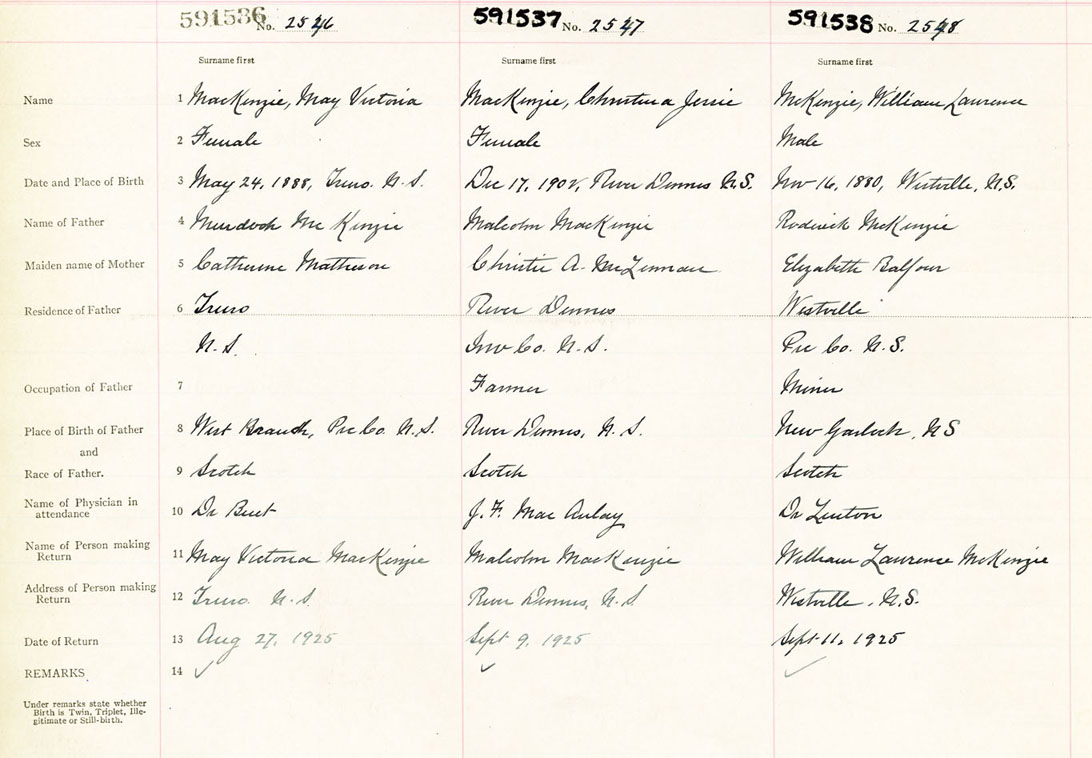 591536 No. 2546 591537 No. 2547 591538 No. 2548
Surname first Surname first Surname first
Name 1 MacKenzie, May Victoria MacKenzie, Christina Jessie McKenzie, William Laurence
Sex 2 Female Female Male
Date and Place of Birth 3 May 24, 1888, Truro. N.S. Dec 17, 1902, River Dennes N.S. Nov 16, 1880, Westville, N.S.
Name of Father 4 Murdoch McKinzie Malcolm MacKenzie Roderick McKenzie
Maiden name of Mother 5 Catherine Matheson Christie A. McLennan Elizabeth Balfour
Residence of Father 6 Truro River Dennes Westville
N.S. Inv Co. N.S. Pic Co. N.S.
Occupation of Father 7 Farmer Miner
Place of Birth of Father 8 West Branch, Pic Co. N.S. River Dennes, N.S. New Garloch, N S
and
Race of Father. 9 Scotch Scotch Scotch
Name of Physician in
attendance 10 Dr J. F. MacAulay Dr
Name of Person making
Return 11 May Victoria MacKenzie Malcolm MacKenzie William Laurence McKenzie
Address of Person making
Return 12 Truro N.S. River Dennes, N.S Westville, N.S.
Date of Return 13 Aug 27, 1925 Sept 9, 1925 Sept 11, 1925
REMARKS. 14 ✓ ✓ ✓
Under remarks state whether
Birth is Twin, Triplet, Ille-
gitimate or Still-birth.